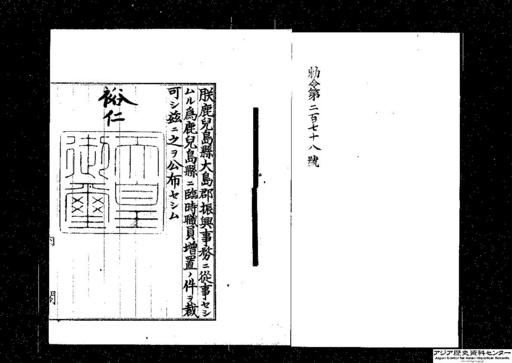 勅令第二百七十八號
朕鹿兒島縣大島郡振興事務ニ從事セシ
ムル爲鹿兒島縣ニ臨時職員增置ノ件ヲ裁
可シ茲ニ之ヲ公布セシム
裕仁
天皇御璽
内閣
アジア歴史資料センター
Japan Center for Asian Historical Records